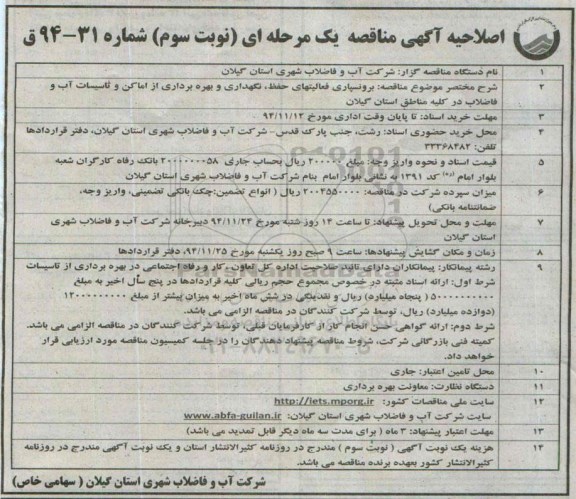 اصلاحیه آگهی مناقصه یک مرحله ای (نوبت سوم) شماره ۳۱-۹۴ ق
۱ نام دستگاه مناقصه گزار: شرکت آب و فاضلاب شهری استان گیلان
۲ شرح مختصر موضوع مناقصه: برونسپاری فعالیتهای حفظ، نگهداری و بهره برداری از اماکن و تاسیسات آب و
فاضلاب در کلیه مناطق استان گیلان
۳ مهلت خرید اسناد: تا پایان وقت اداری مورخ ۹۴/۱۱/۱۲
۴ محل خرید حضوری اسناد: رشت، جنب پارک قدس- شرکت آب و فاضلاب شهری استان گیلان، دفتر قراردادها
تلفن: ۳۳۳۶۸۴۸۲
۵ قیمت اسناد و نحوه واریز وجه: مبلغ ۲۰۰۰۰۰ ریال بحساب جاری ۲۰۰۰۰۰۰۰۵۸ بانک رفاه کارگران شعبه
بلوار امام (ره) کد ۱۳۹۱ به نشانی بلوار امام بنام شرکت آب و فاضلاب شهری استان گیلان
۶ میزان سپرده شرکت در مناقصه: ۲۰۰۴۵۵۰۰۰۰ ریال ( انواع تضمین:چک بانکی تضمینی، واریز وجه،
ضمانتنامه بانکی)
۷ مهلت و محل تحویل پیشنهاد: تا ساعت ۱۴ روز شنبه مورخ ۹۴/۱۱/۲۴ دبیرخانه شرکت آب و فاضلاب شهری
استان گیلان
۸ زمان و مکان گشایش پیشنهادها: ساعت ۹ صبح روز یکشنبه مورخ ۹۴/۱۱/۲۵، دفتر قراردادها
۹ رشته پیمانکار: پیمانکاران دارای تائید صلاحیت اداره کل تعاون، کار و رفاه اجتماعی در بهره برداری از تاسیسات
شرط اول: ارائه اسناد مثبته در خصوص مجموع حجم ریالی کلیه قراردادها در پنج سال اخیر به مبلغ
۵۰۰۰۰۰۰۰۰۰۰ ( پنجاه میلیارد) ریال و نقدینگی در شش ماه اخیر به میزان پیشتر از مبلغ ۱۲۰۰۰۰۰۰۰۰۰
(دوازده میلیارد) ریال، توسط شرکت کنندگان در مناقصه الزامی می باشد.
شرط دوم: ارائه گواهی حسن انجام کار از کارفرمایان قبلی، توسط شرکت کنندگان در مناقصه الزامی می باشد.
کمیته فنی بازرگانی شرکت، شروط مناقصه پیشنهاد دهندگان را در جلسه کمیسیون مناقصه مورد ارزیابی قرار
خواهد داد.
۱۰ محل تامین اعتبار: جاری
۱۱ دستگاه نظارت: معاونت بهره برداری
۱۲ سایت ملی مناقصات کشور: http://iets.mporg.ir
سایت شرکت آب و فاضلاب شهری استان گیلان: www.abfa-guilan.ir
۱۳ مهلت اعتبار پیشنهاد: ۳ ماه ( برای مدت سه ماه دیگر قابل تمدید می باشد)
۱۴ هزینه یک نوبت آگهی ( نوبت سوم ) مندرج در روزنامه کثیرالانتشار استان و یک نوبت آگهی مندرج در روزنامه
کثیرالانتشار کشور بعهده برنده مناقصه می باشد.
شرکت آب و فاضلاب شهری استان گیلان ( سهامی خاص)